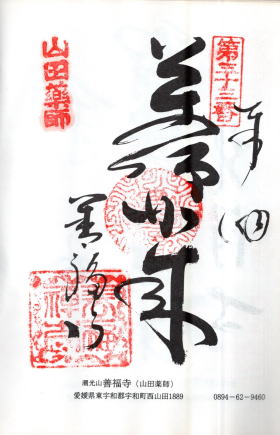 第三十三番
奉納
薬師如来
山田薬師
善福寺
潮光山 善福寺(山田薬師)
愛媛県東宇和郡宇和町西山田1889 0894-62-9460